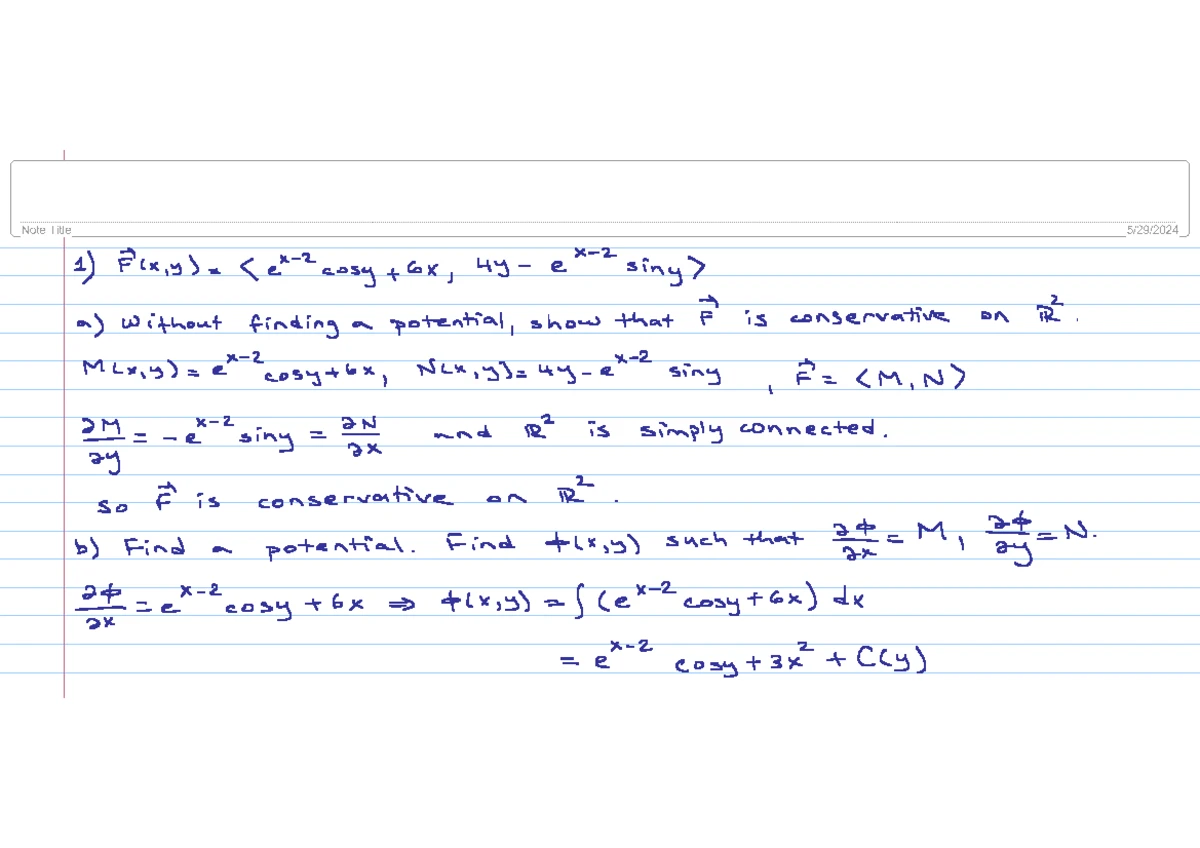 Note Title
5/29/2024
1) F⃗(x,y) = ⟨e^{x-2} cosy + 6x, 4y - e^{x-2} siny⟩
a) Without finding a potential, show that F⃗ is conservative on ℝ².
M(x,y) = e^{x-2} cosy + 6x, N(x,y) = 4y - e^{x-2} siny, F⃗ = ⟨M, N⟩
∂M/∂y = -e^{x-2} siny = ∂N/∂x and ℝ² is simply connected.
so F⃗ is conservative on ℝ².
b) Find a potential. Find ϕ(x,y) such that ∂ϕ/∂x = M, ∂ϕ/∂y = N.
∂ϕ/∂x = e^{x-2} cosy + 6x ⇒ ϕ(x,y) = ∫(e^{x-2} cosy + 6x) dx
= e^{x-2} cosy + 3x² + C(y)